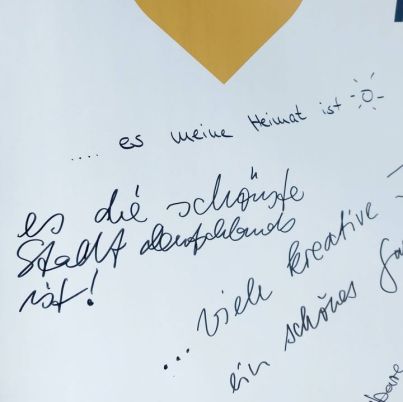 .... es meine Heimat ist
es die schönste
Stadt Deutschlands
ist!
... viele kreative
ein schönes